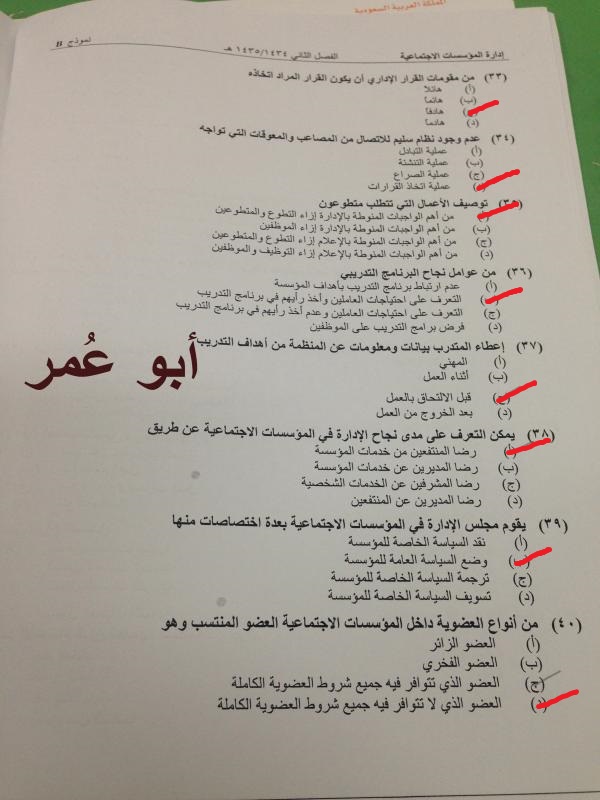 المملكة العربية السعودية
إدارة المؤسسات الاجتماعية الفصل الثاني ١٤٣٥/١٤٣٤ هـ نموذج B
(٣٣) من مقومات القرار الإداري أن يكون القرار المراد اتخاذه
(أ) هائلاً
(ب) هائماً
هادفاً
(د) هادماً
(٣٤) عدم وجود نظام سليم للاتصال من المصاعب والمعوقات التي تواجه
(أ) عملية التبادل
(ب) عملية التنشئة
(ج) عملية الصراع
(د) عملية اتخاذ القرارات
(٣٥) توصيف الأعمال التي تتطلب متطوعون
(أ) من أهم الواجبات المنوطة بالإدارة إزاء التطوع والمتطوعين
(ب) من أهم الواجبات المنوطة بالإدارة إزاء الموظفين
(ج) من أهم الواجبات المنوطة بالإعلام إزاء التطوع والمتطوعين
(د) من أهم الواجبات المنوطة بالإعلام إزاء التوظيف والموظفين
(٣٦) من عوامل نجاح البرنامج التدريبي
(أ) عدم ارتباط برنامج التدريب بأهداف المؤسسة
(ب) التعرف على احتياجات العاملين وأخذ رأيهم في برنامج التدريب
(ج) التعرف على احتياجات العاملين وعدم أخذ رأيهم في برنامج التدريب
(د) فرض برامج التدريب على الموظفين
(٣٧) إعطاء المتدرب بيانات ومعلومات عن المنظمة من أهداف التدريب
(أ) المهني
(ب) أثناء العمل
أبو عُمر
(ج) قبل الالتحاق بالعمل
(د) بعد الخروج من العمل
(٣٨) يمكن التعرف على مدى نجاح الإدارة في المؤسسات الاجتماعية عن طريق
(أ) رضا المنتفعين من خدمات المؤسسة
(ب) رضا المديرين عن خدمات المؤسسة
(ج) رضا المشرفين عن الخدمات الشخصية
(د) رضا المديرين عن المنتفعين
(٣٩) يقوم مجلس الإدارة في المؤسسات الاجتماعية بعدة اختصاصات منها
(أ) نقد السياسة الخاصة للمؤسسة
(ب) وضع السياسة العامة للمؤسسة
(ج) ترجمة السياسة الخاصة للمؤسسة
(د) تسويف السياسة الخاصة للمؤسسة
(٤٠) من أنواع العضوية داخل المؤسسات الاجتماعية العضو المنتسب وهو
(أ) العضو الزائر
(ب) العضو الفخري
(ج) العضو الذي تتوافر فيه جميع شروط العضوية الكاملة
(د) العضو الذي لا تتوافر فيه جميع شروط العضوية الكاملة